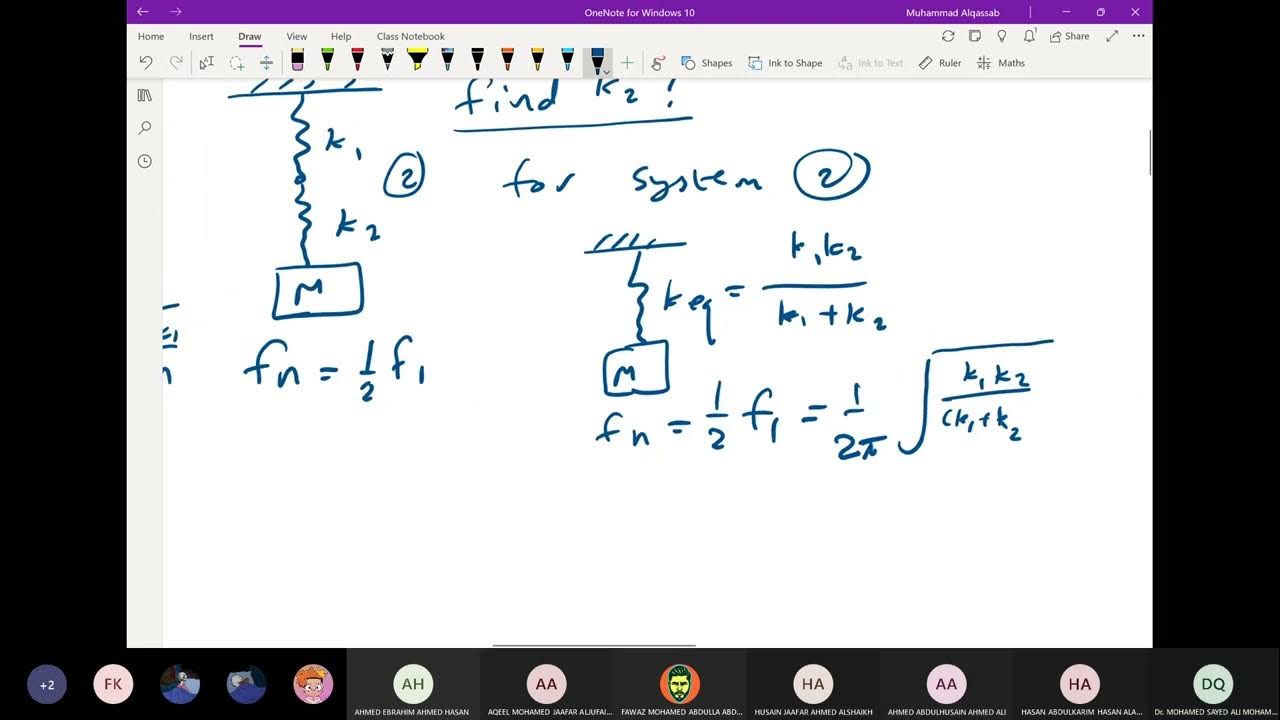 OneNote for Windows 10
Muhammad Alqassab
Home Insert Draw View Help Class Notebook
Share
Shapes Ink to Shape Ink to Text Ruler Maths
find k2?
k1
2
for system 2
k2
k1k2
keq = ———
k1+k2
M
M
fn = 1/2 f1
fn = 1/2 f1 = 1/2π √ k1k2/(k1+k2
+2
FK
AH
AA
HA
AA
HA
DQ
AHMED EBRAHIM AHMED HASAN
AQEEL MOHAMED JAAFAR ALJUFAI...
FAWAZ MOHAMED ABDULLA ABD...
HUSAIN JAAFAR AHMED ALSHAIKH
AHMED ABDULHUSAIN AHMED ALI
HASAN ABDULKARIM HASAN ALA...
Dr. MOHAMED SAYED ALI MOHAM...